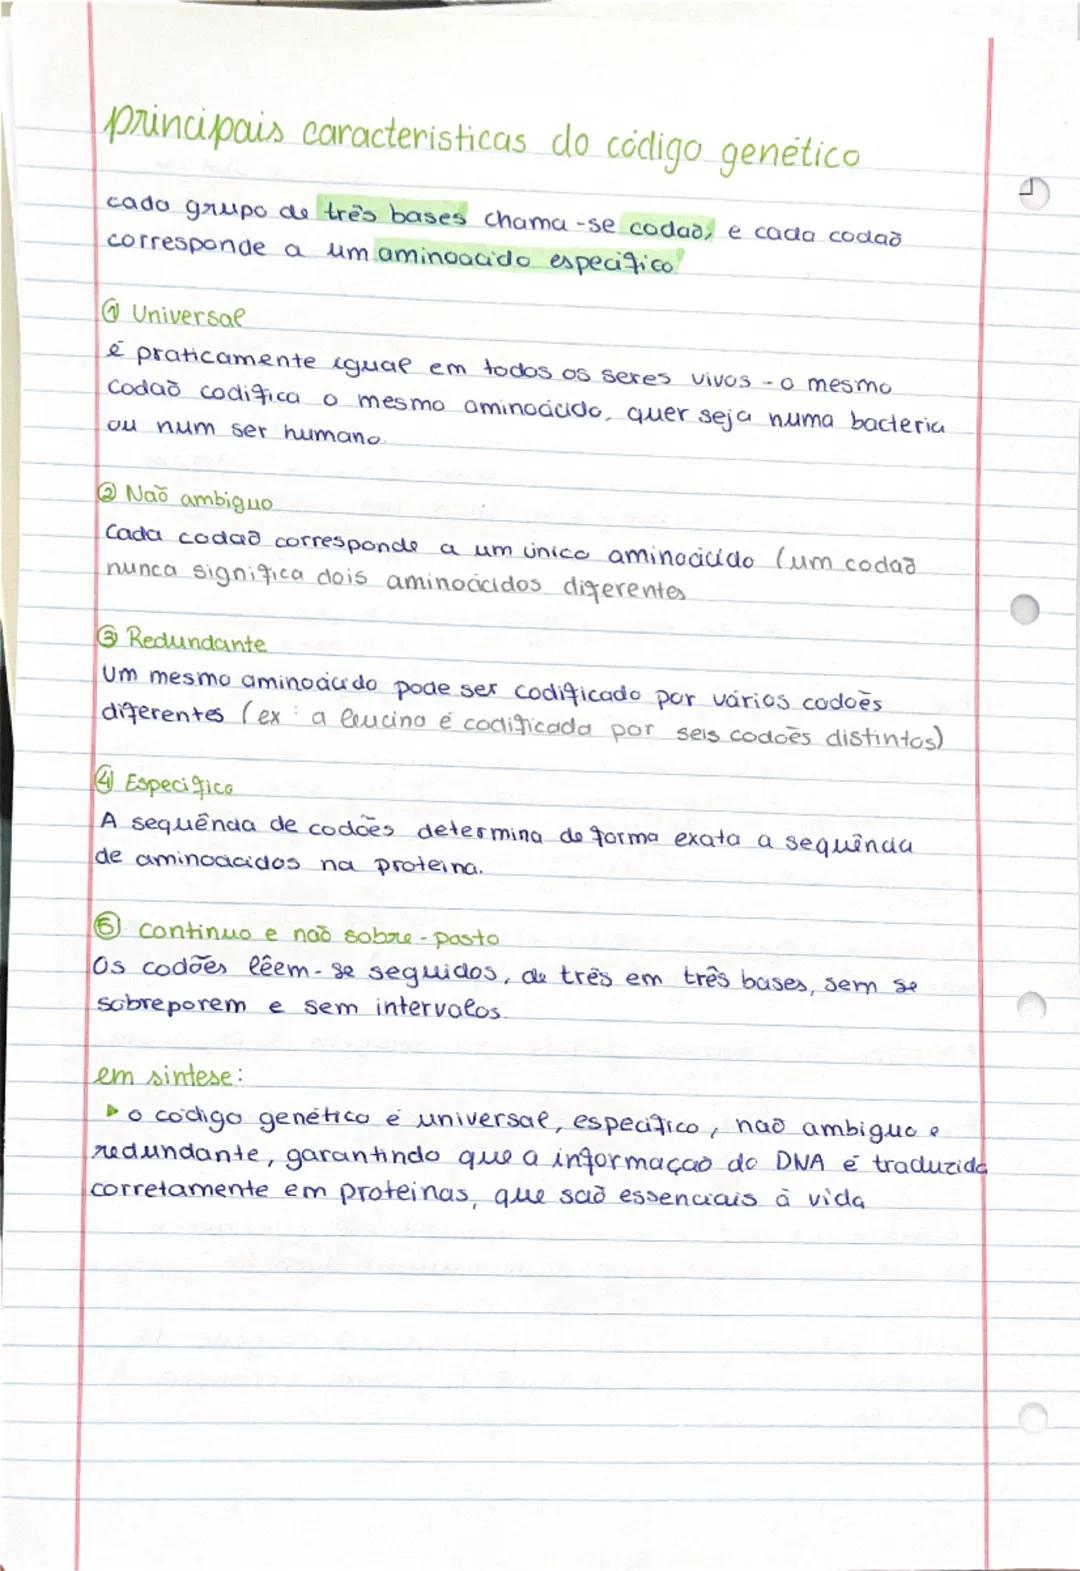 principais caracteristicas do código genético
cada grupo de três bases chama-se codaõ, e cada codaõ
corresponde a um aminoacido especifico
① Universal
é praticamente igual em todos os seres vivos - o mesmo
codaõ codifica o mesmo aminoácido, quer seja numa bacteria
ou num ser humano.
② Naõ ambiguo
Cada codaõ corresponde a um único aminoácido (um codaõ
nunca significa dois aminoácidos diferentes
③ Redundante
Um mesmo aminoácido pode ser codificado por vários codoẽs
diferentes (ex: a leucina é codificada por seis codoẽs distintos)
④ Especifico
A sequência de codoẽs determina de forma exata a sequência
de aminoacidos na proteina.
⑤ continuo e naõ sobre-posto
Os codoẽs lêem-se seguidos, de três em três bases, sem se
sobreporem e sem intervalos.
em sintese:
▸ o codigo genético é universal, especifico, naõ ambiguo e
redundante, garantindo que a informaçaõ do DNA é traduzida
corretamente em proteinas, que saõ essenciais à vida